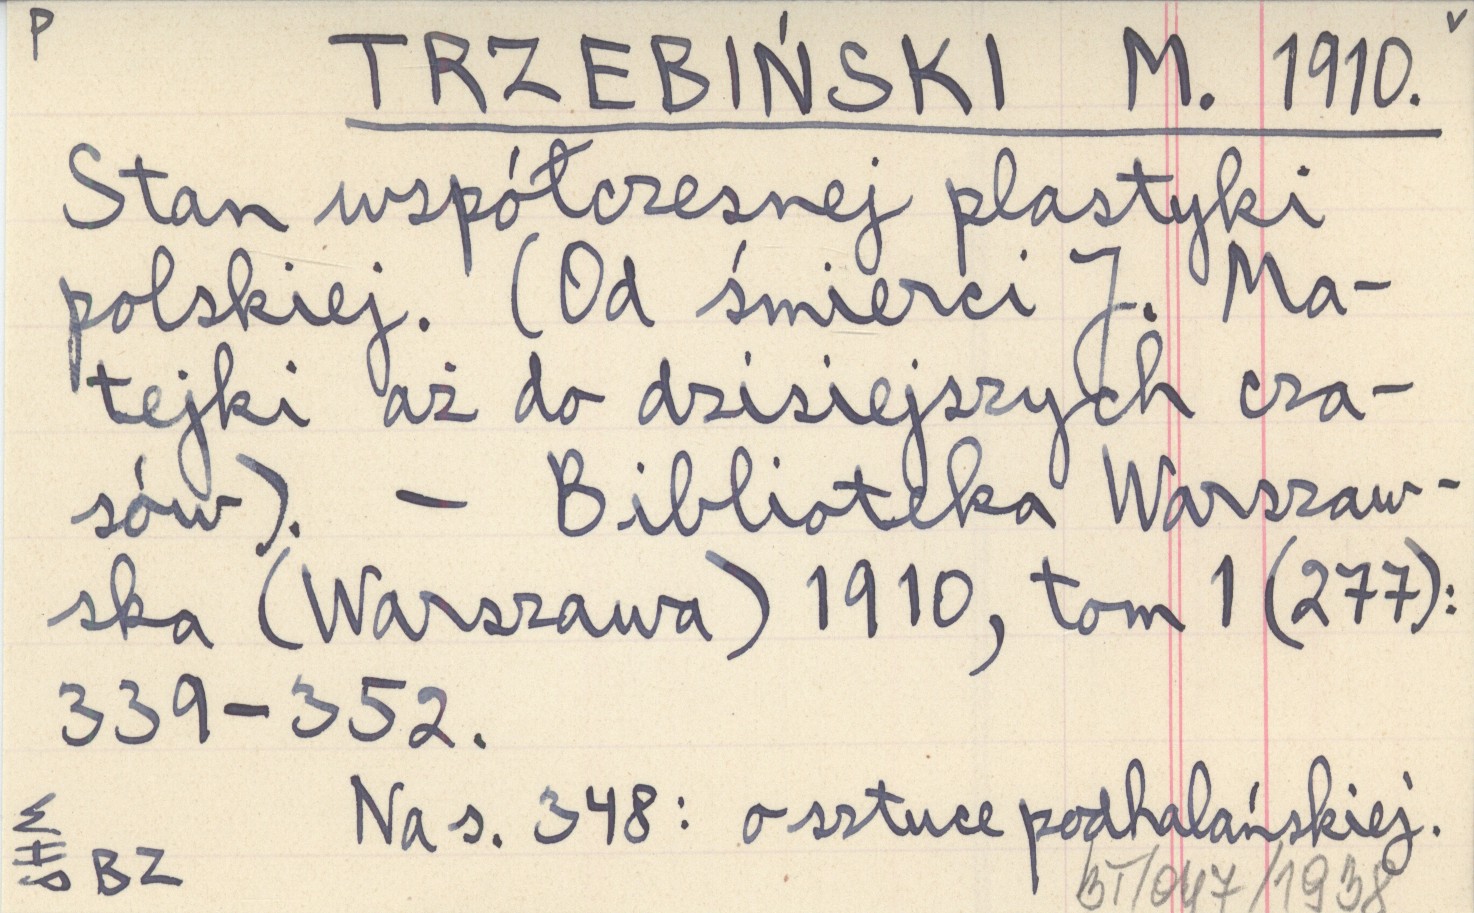 P
v
TRZEBIŃSKI M. 1910.
Stan współczesnej plastyki
polskiej. (Od śmierci J. Ma-
tejki aż do dzisiejszych cza-
sów). — Biblioteka Warszaw-
ska (Warszawa) 1910, tom 1 (277):
339-352.
Na s. 348: o sztuce podhalańskiej.
BZ
/047/1938